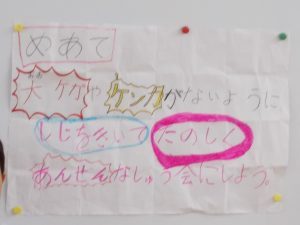 めあて
大ケガやケンカがないように
しじをきいてたのしく
あんぜんなしゅう会にしよう。